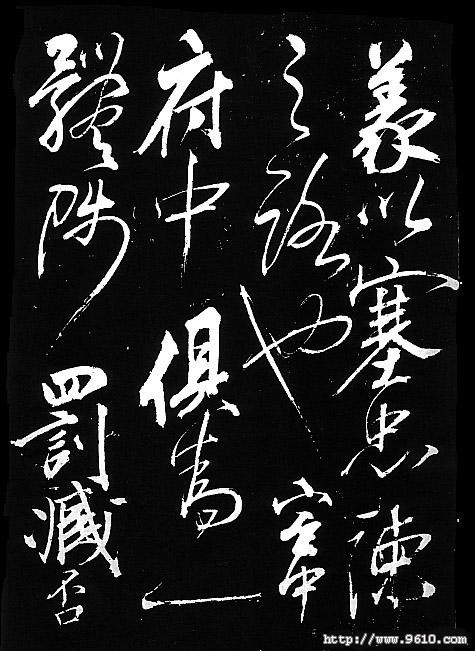 義以塞忠諫
之路也宮中
府中俱為一
體陟罰臧否
http://www.9610.com